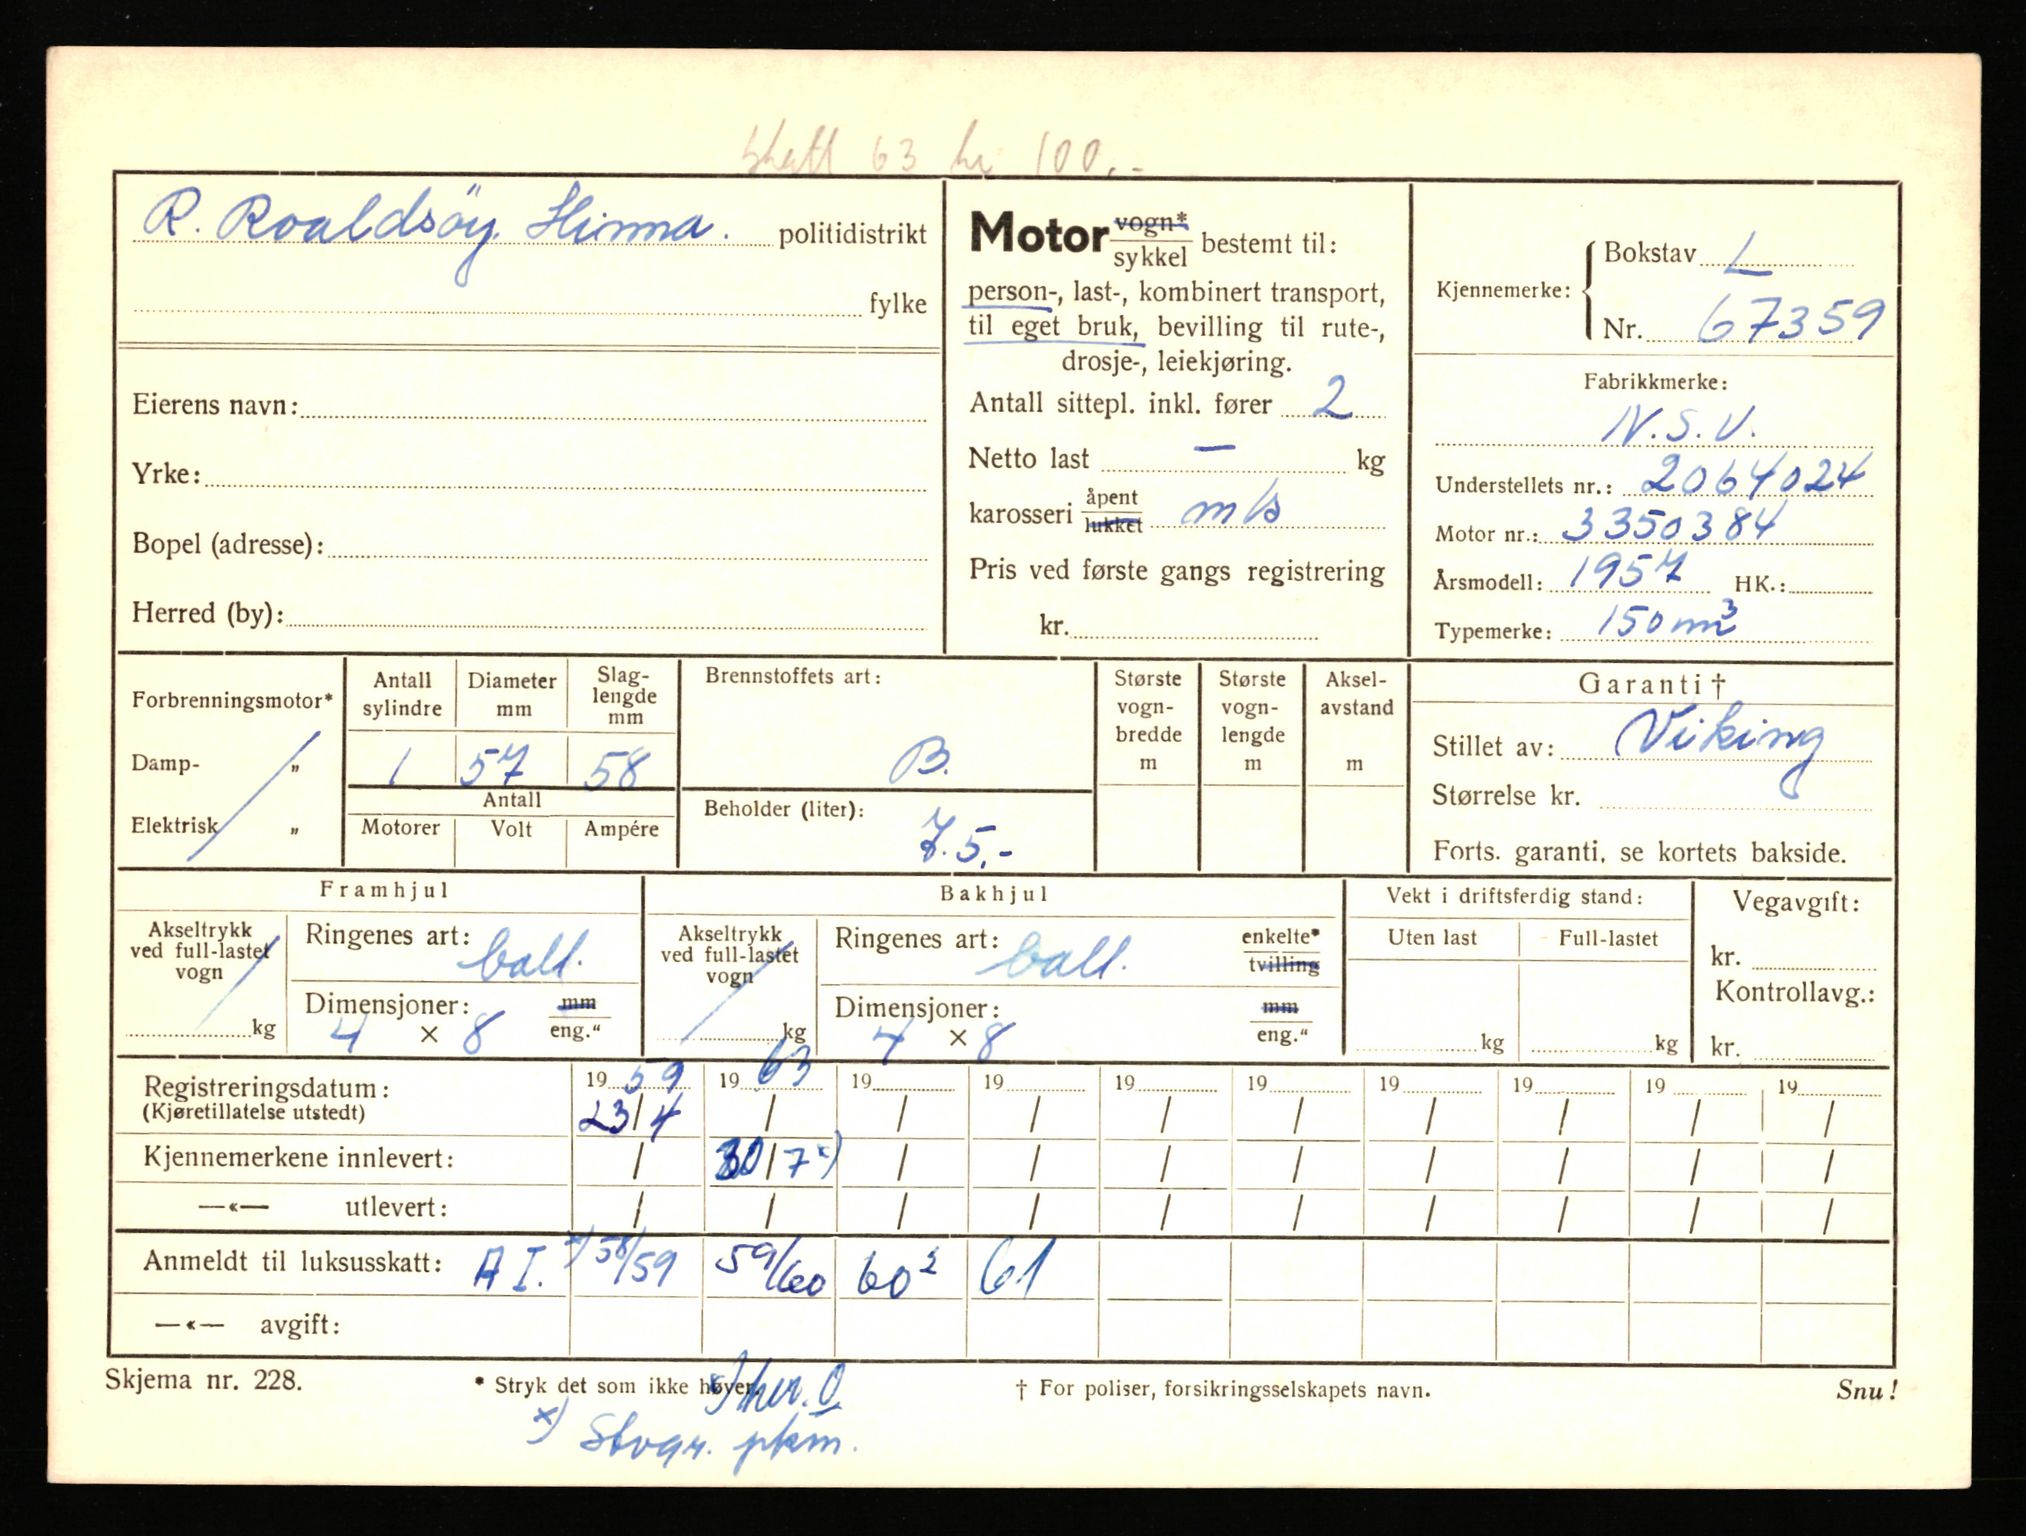 Skatt 63 kr 100.-
R. Roaldsöy. Hinna. politidistrikt
fylke
Eierens navn:
Yrke:
Bopel (adresse):
Herred (by):
Motor vogn* sykkel bestemt til:
person-, last-, kombinert transport,
til eget bruk, bevilling til rute-,
drosje-, leiekjøring.
Antall sittepl. inkl. fører 2
Netto last — kg
karosseri åpent lukket m/s
Pris ved første gangs registrering
kr.
Kjennemerke: Bokstav L
Nr. 67359
Fabrikkmerke:
N.S.U.
Understellets nr.: 2064024
Motor nr.: 3350384
Årsmodell: 1957 HK.:
Typemerke: 150 m³
Forbrenningsmotor*
Damp- „
Elektrisk „
Antall sylindre Diameter mm Slag-lengde mm
1 57 58
Antall
Motorer Volt Ampére
Brennstoffets art:
B.
Beholder (liter):
7.5.-
Største vogn-bredde m
Største vogn-lengde m
Aksel-avstand m
Garanti †
Stillet av: Viking
Størrelse kr.
Forts. garanti, se kortets bakside.
Framhjul
Akseltrykk ved full-lastet vogn kg
Ringenes art: ball.
Dimensjoner: mm eng."
4 × 8
Bakhjul
Akseltrykk ved full-lastet vogn kg
Ringenes art: ball. enkelte* tvilling
Dimensjoner: mm eng."
4 × 8
Vekt i driftsferdig stand:
Uten last Full-lastet
kg kg
Vegavgift:
kr.
Kontrollavg.:
kr.
Registreringsdatum: 19 59 19 63 19 19 19 19 19 19 19 19
(Kjøretillatelse utstedt) 23/4 / / / / / / / / /
Kjennemerkene innlevert: / 30/7 x) / / / / / / / /
—«— utlevert: / / / / / / / / / /
Anmeldt til luksusskatt: A I. x) 58/59 59/60 60² 61
—«— avgift:
Skjema nr. 228. * Stryk det som ikke høver. † For poliser, forsikringsselskapets navn. Snu!
x) Stvgr. pkm.